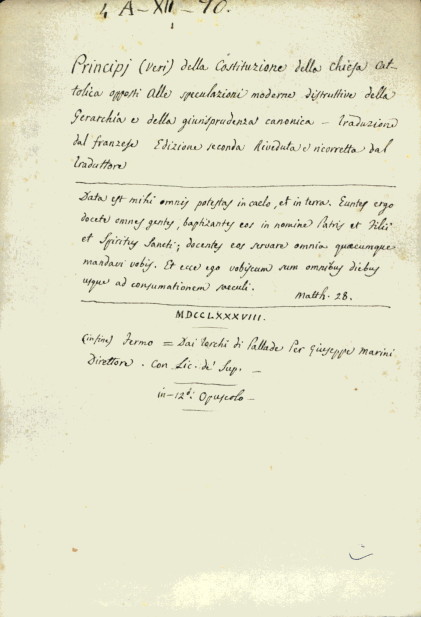 4 A-XII-70.
1
Principj (Veri) della Costituzione della Chiesa Cat-
tolica opposti Alle speculazioni moderne distruttive della
Gerarchia e della giurisprudenza canonica - traduzione
dal franzese Edizione seconda Riveduta e ricorretta dal
traduttore
Data est mihi omnis potestas in caelo, et in terra. Euntes ergo
docete omnes gentes, baptizantes eos in nomine Patris et Filii
et Spiritus Sancti; docentes eos servare omnia quaecumque
mandavi vobis. Et ecce ego vobiscum sum omnibus diebus
usque ad consumationem saeculi.
Matth. 28.
MDCCLXXXVIII.
(in fine) Fermo = Dai Torchi di Pallade Per Giuseppe Marini
Direttore. Con Lic. de' Sup. -
in-12°: Opuscolo -